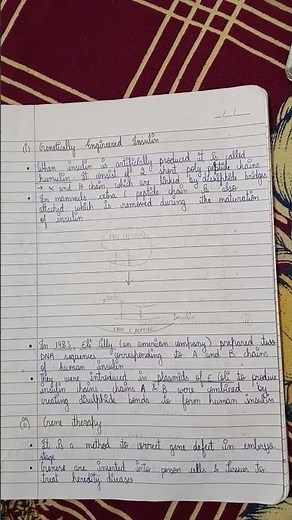 (i) Genetically Engineered Insulin
• When insulin is artificially produced it is called
humulin. It consist of 2 short poly peptide chains
→ α and B chain which are linked by disulphide bridges
• In mammals extra C peptide chain is also
attached which is removed during the maturation
of insulin
Insulin
• In 1983, Eli Lilly (an american company) prepared two
DNA sequences corresponding to A and B chains
of human insulin
• They were introduced in plasmids of E. Coli to produce
insulin chains chains A & B were combined by
creating disulphide bonds to form human insulin
Gene therapy
• It is a method to correct gene defect in embryo
stage
• Genes are inserted into person cells & tissues to
treat heredity diseases